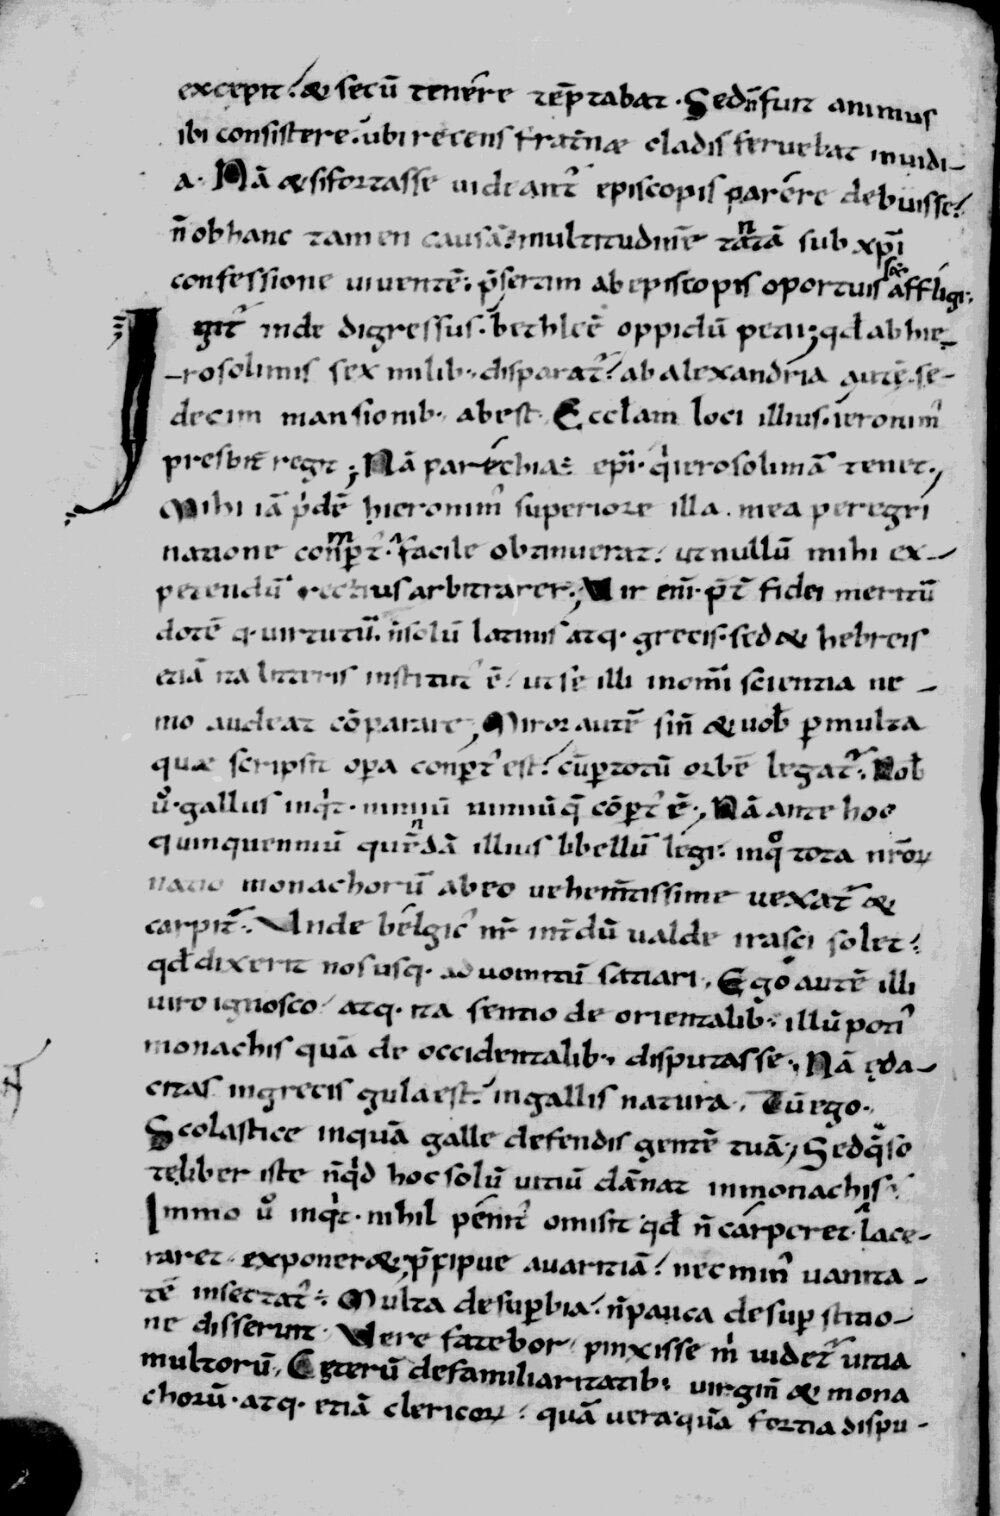 excepit: & secū tenere tēptabat. Sed ñ fuit animus
ibi consistere. ubi recens fraternæ cladis feruebat inuidi-
a. Nā & si fortasse uideant᷑ episcopis parere debuisse:
ñ ob hanc tamen causā: multitudinē tantā sub xp̄i
confessione uiuentē: p̄sertim ab episcopis oportuisset affligi.
Igit᷑ inde digressus. bethleē oppidū petii; qđ ab hie-
-rosolimis sex milib; disparat᷑: ab alexandria autē se-
decim mansionib; abest. Eccłam loci illius. ieronimꝰ
presbit̄ regit; Nā parechia ē epi. q̇ ierosolimā tenet;
Mihi iā p̍dē hieronimꝰ superiore illa mea peregri
natione compert᷑. facile obtinuerat: ut nullū mihi ex-
petendū rectius arbitrarer; Vir eni̅. p̄t̄ fidei meritū
dotē q; uirtutū. ñ solū latinis atq; grecis. sed & hebreis
etiā ita litteris institutꝰ ē: ut se illi in om̄i scientia ne -
mo audeat cōparare; Miror autē sin̄ & uob̄ ꝑ multa
quæ scripsit oꝑa conꝑtꝰ est: cū ꝑ totū orbē legat᷑. Nob̄
ů. gallus inq̇t. nimiū nimiūq̄ cōꝑtꝰ ē; Nā ante hoc
quinquenniū quendā illius libellū legi. in q̊ tota nr̄oꝝ
natio monachorū ab eo uehem̄tissime uexat᷑ &
carpit᷑. Unde belgicꝰ nr̄ int̄dū ualde irasci solet:
qđ dixerit nos usq; ad uomitū satiari. Ego autē illi
uiro ignosco: atq; ita sentio de orientalib; illū potiꝰ
monachis quā de occidentalib; disputasse. Nā ęda-
citas in grecis gula est: in gallis natura. Tū ego.
Scolastice inquā galle defendis gentē tuā; Sed q̄so
te liber iste ñq̇d hoc solū uitiū dānat in monachis:
Immo ů inq̇t. nihil penitꝰ omisit qđ ñ carperet. lace-
raret. exponer& p̄cipue auaritiā: nec minꝰ uanita-
tē insectat᷑: Multa de suꝑbia: ñ pauca de suꝑstitio-
ne disseruit. Vere fatebor. pinxisse m̍ uidet᷑ uitia
multorū. Ceterū de familiaritatib; uirgin̄ & mona
chorū. atq; etiā clericoꝝ: quā uera. quā fortia dispu-